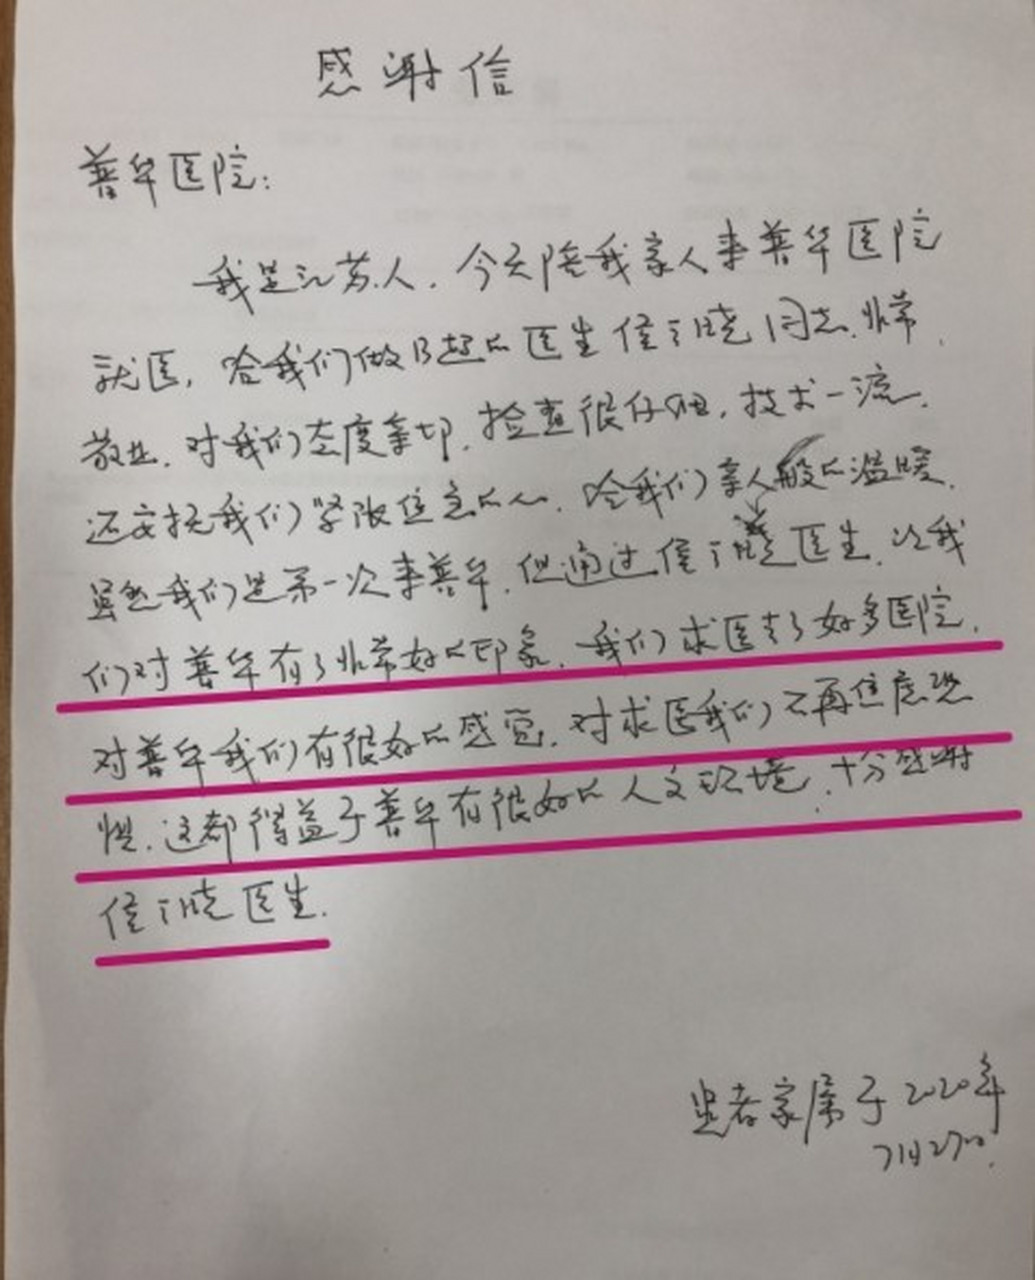 感谢信
普华医院:
我是江苏人.今天陪我家人来普华医院
就医,给我们做B超的医生侯于晓同志.非常.
敬业.对我们态度亲切.检查很仔细.技术一流.
还安抚我们紧张焦急的心.给我们亲人般的温暖.
虽然我们是第一次来普华.但通过侯于晓医生.让我
们对普华有了非常好的印象.我们求医去了好多医院.
对普华我们有很好的感觉.对求医我们不再焦虑恐
惧.这都得益于普华有很好的人文环境.十分感谢
侯于晓医生.
患者家属于2020年
7月27日.